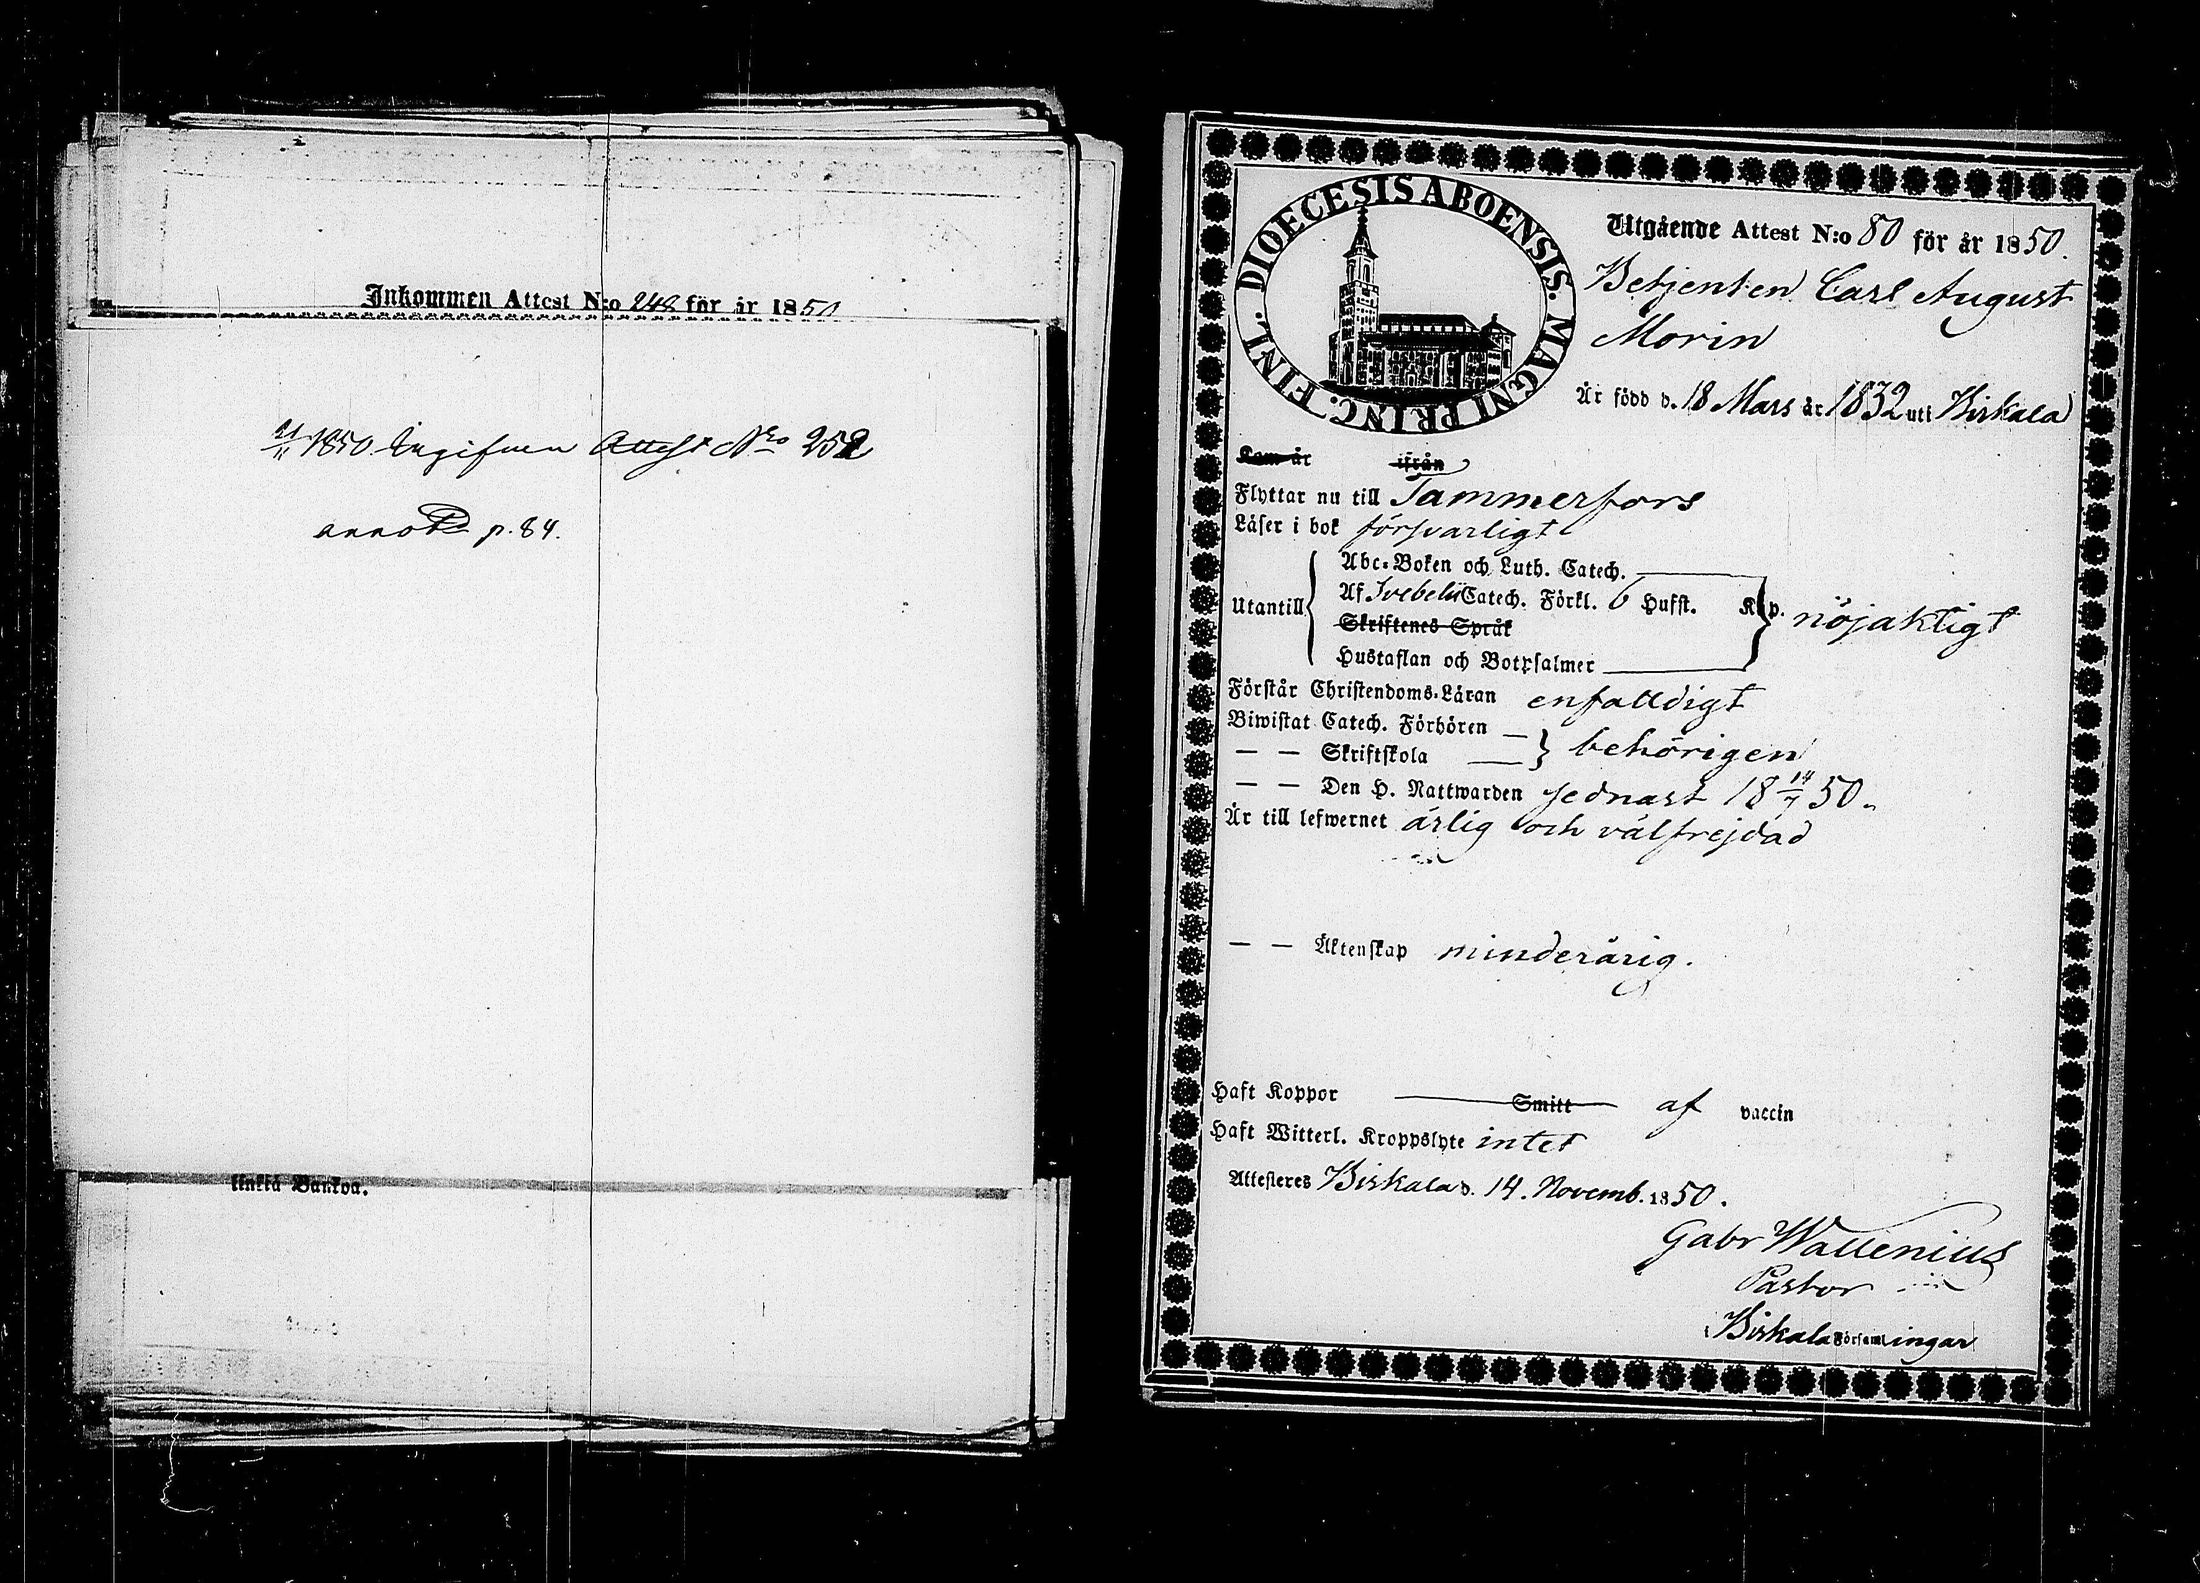 Inkommen Attest N:o 248 för år 1850
21/11 1850 Ingifven Attest No 252
annot p. 84.
linkiä Pankoa.
DIOECESIS ABOENSIS. MAGNI PRINC. FINL.
Utgående Attest N:o 80 för år 1850.
Betjenten Carl August
Morin
Är född d. 18 Mars år 1832 uti Birkala
Kom år ifrån
Flyttar nu till Tammerfors
Läser i bok försvarligt
Utantill
Abc-Boken och Luth. Catech.
Af Svebelii Catech. Förkl. 6 Hufst. Kap. nöjaktigt
Skriftenes Språk
Hustaflan och Botpsalmer
Förstår Christendoms-Läran enfalldigt
Biwistat Catech. Förhören —
— — Skriftskola — behörigen
— — Den H. Nattwarden sednast 18 14/7 50.
Är till lefwernet ärlig och välfrejdad
— — Äktenskap minderårig.
Haft Koppor Smitt af vaccin
Haft Witterl. Kroppslyte intet
Attesteres Birkala d. 14. Novemb. 1850.
Gabr Wallenius
Pastor
i Birkala Församlingar